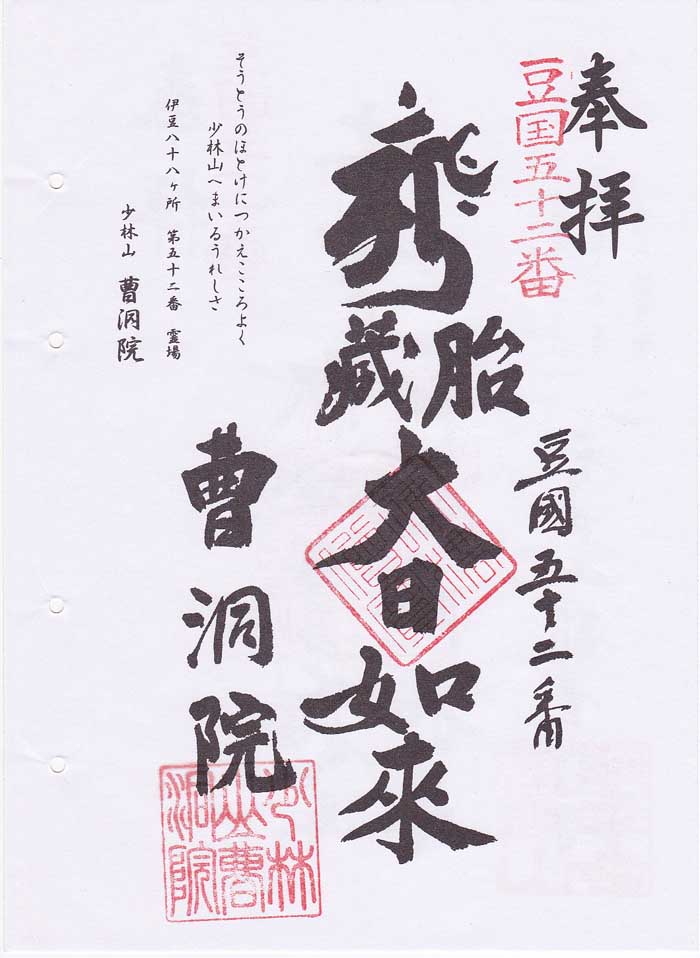 奉拝
豆国五十二番
豆國五十二番
胎蔵
大日如來
曹洞院
そうとうのほとけにつかえこころよく
少林山へまいるうれしさ
伊豆八十八ヶ所 第五十二番 霊場
少林山 曹洞院
少林山曹洞院